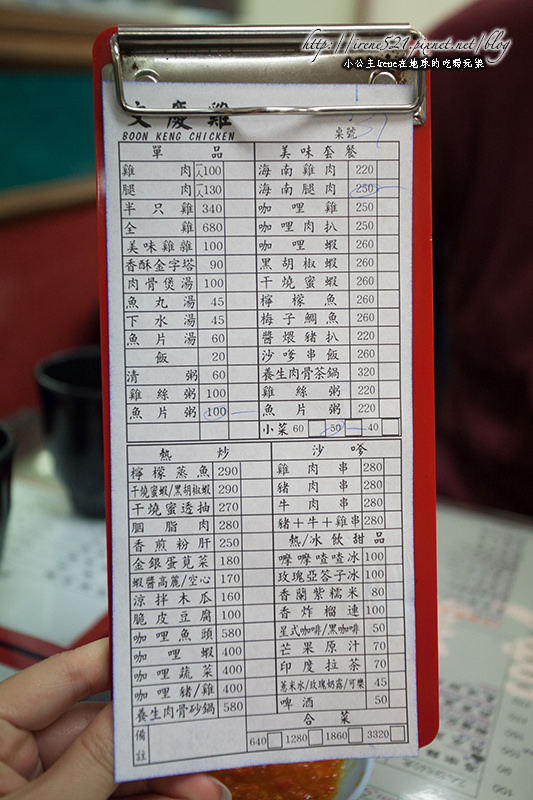 http://irene521.pixnet.net/blog
小公主Irene在地球的吃喝玩樂
文慶雞
BOON KENG CHICKEN
桌號
單品
雞肉 一人 100
腿肉 一人 130
半只雞 340
全雞 680
美味雞雜 100
香酥金字塔 90
肉骨煲湯 100
魚丸湯 45
下水湯 45
魚片湯 60
飯 20
清粥 60
雞絲粥 100
魚片粥 100
美味套餐
海南雞肉 220
海南腿肉 250
咖哩雞 250
咖哩肉扒 250
咖哩蝦 260
黑胡椒蝦 260
干燒蜜蝦 260
檸檬魚 260
梅子鯛魚 260
醬煨豬扒 220
沙嗲串飯 260
養生肉骨茶鍋 320
雞絲粥 220
魚片粥 220
小菜 60 50 40
熱炒
檸檬蒸魚 290
干燒蜜蝦/黑胡椒蝦 290
干燒蜜透抽 270
胭脂肉 280
香煎粉肝 250
金銀蛋莧菜 180
蝦醬高麗/空心 170
涼拌木瓜 160
脆皮豆腐 100
咖哩魚頭 580
咖哩蝦 400
咖哩蔬菜 400
咖哩豬/雞 400
養生肉骨砂鍋 580
沙嗲
雞肉串 280
豬肉串 280
牛肉串 280
豬+牛+雞串 280
熱/冰飲甜品
嚤嚤喳喳冰 100
玫瑰亞荅子冰 100
香蘭紫糯米 80
香炸榴連 100
星式咖啡/黑咖啡 50
芒果原汁 70
印度拉茶 70
薏米水/玫瑰奶露/可樂 45
啤酒 50
合菜
備註
640 1280 1860 3320